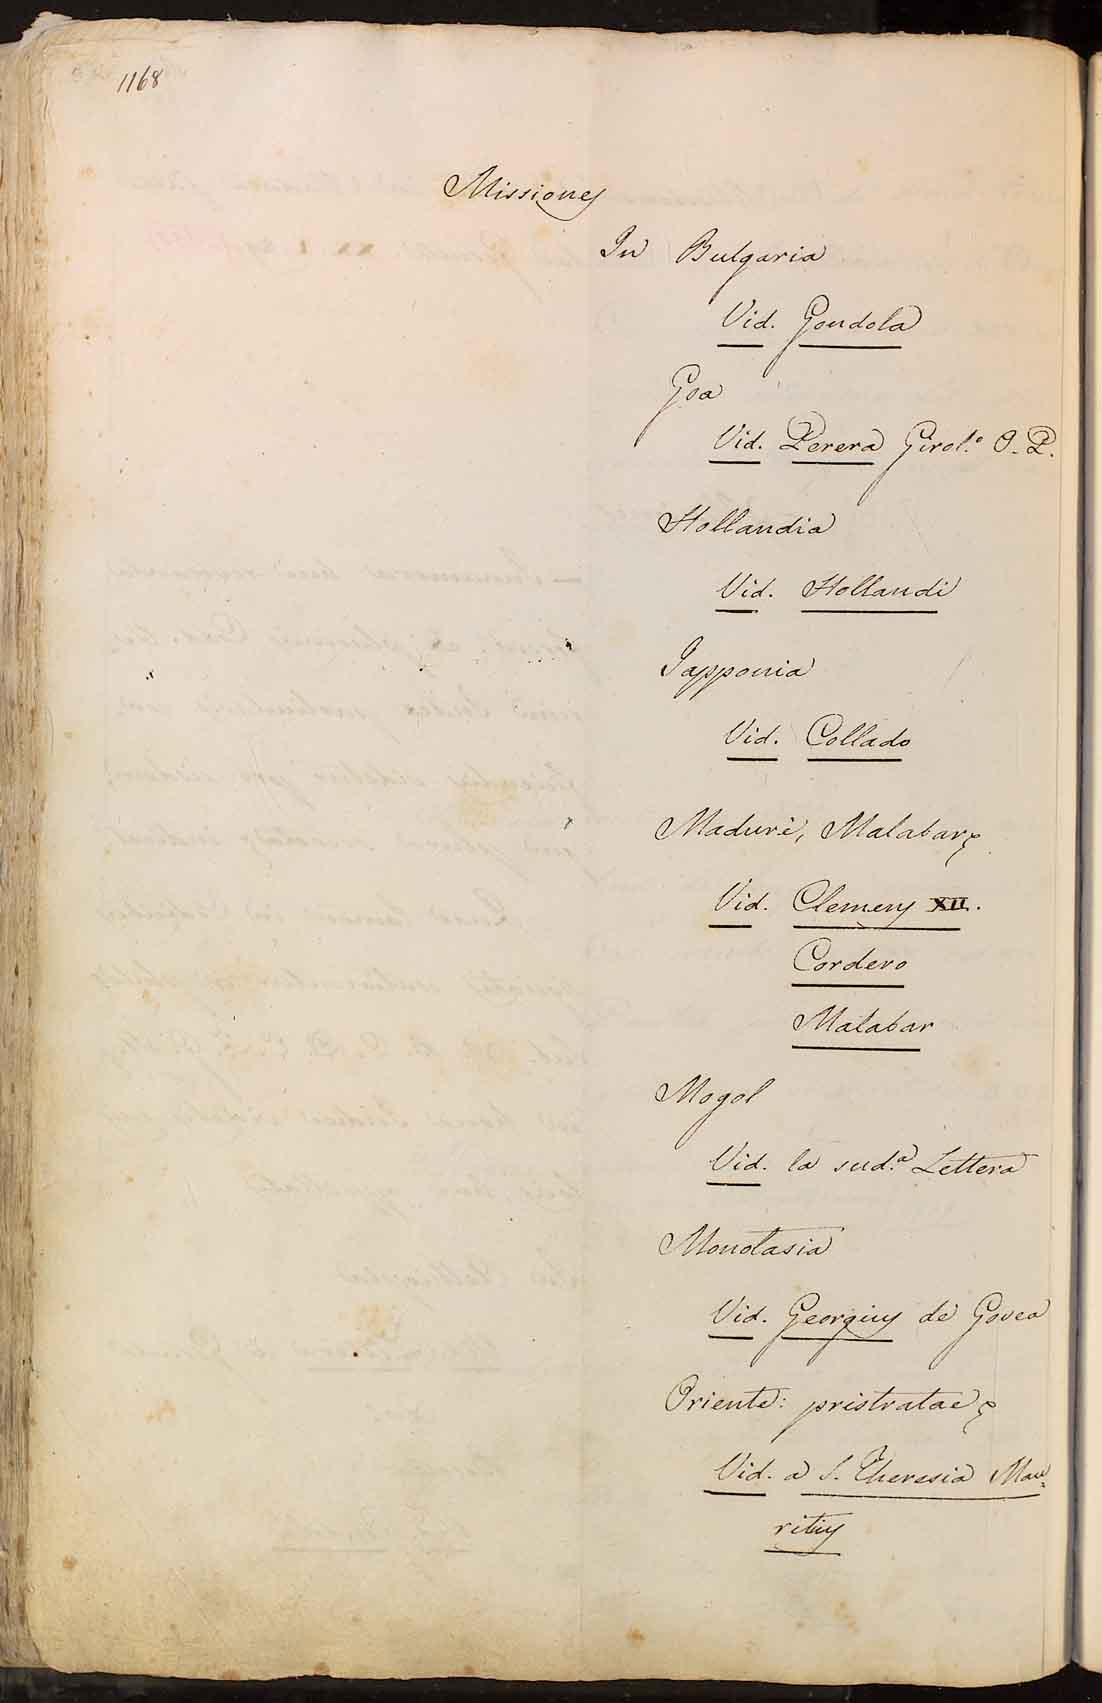 1168
Missiones
In Bulgaria
Vid. Gondola
Goa
Vid. Perera Girol.º O. P.
Hollandia
Vid. Hollandi
Japponia
Vid. Collado
Madurè, Malabar &
Vid. Clemens XII.
Cordero
Malabar
Mogol
Vid. la sud.ª Lettera
Monotasia
Vid. Georgius de Govea
Oriente: pristratae &
Vid. a S. Theresia Mau=
ritius